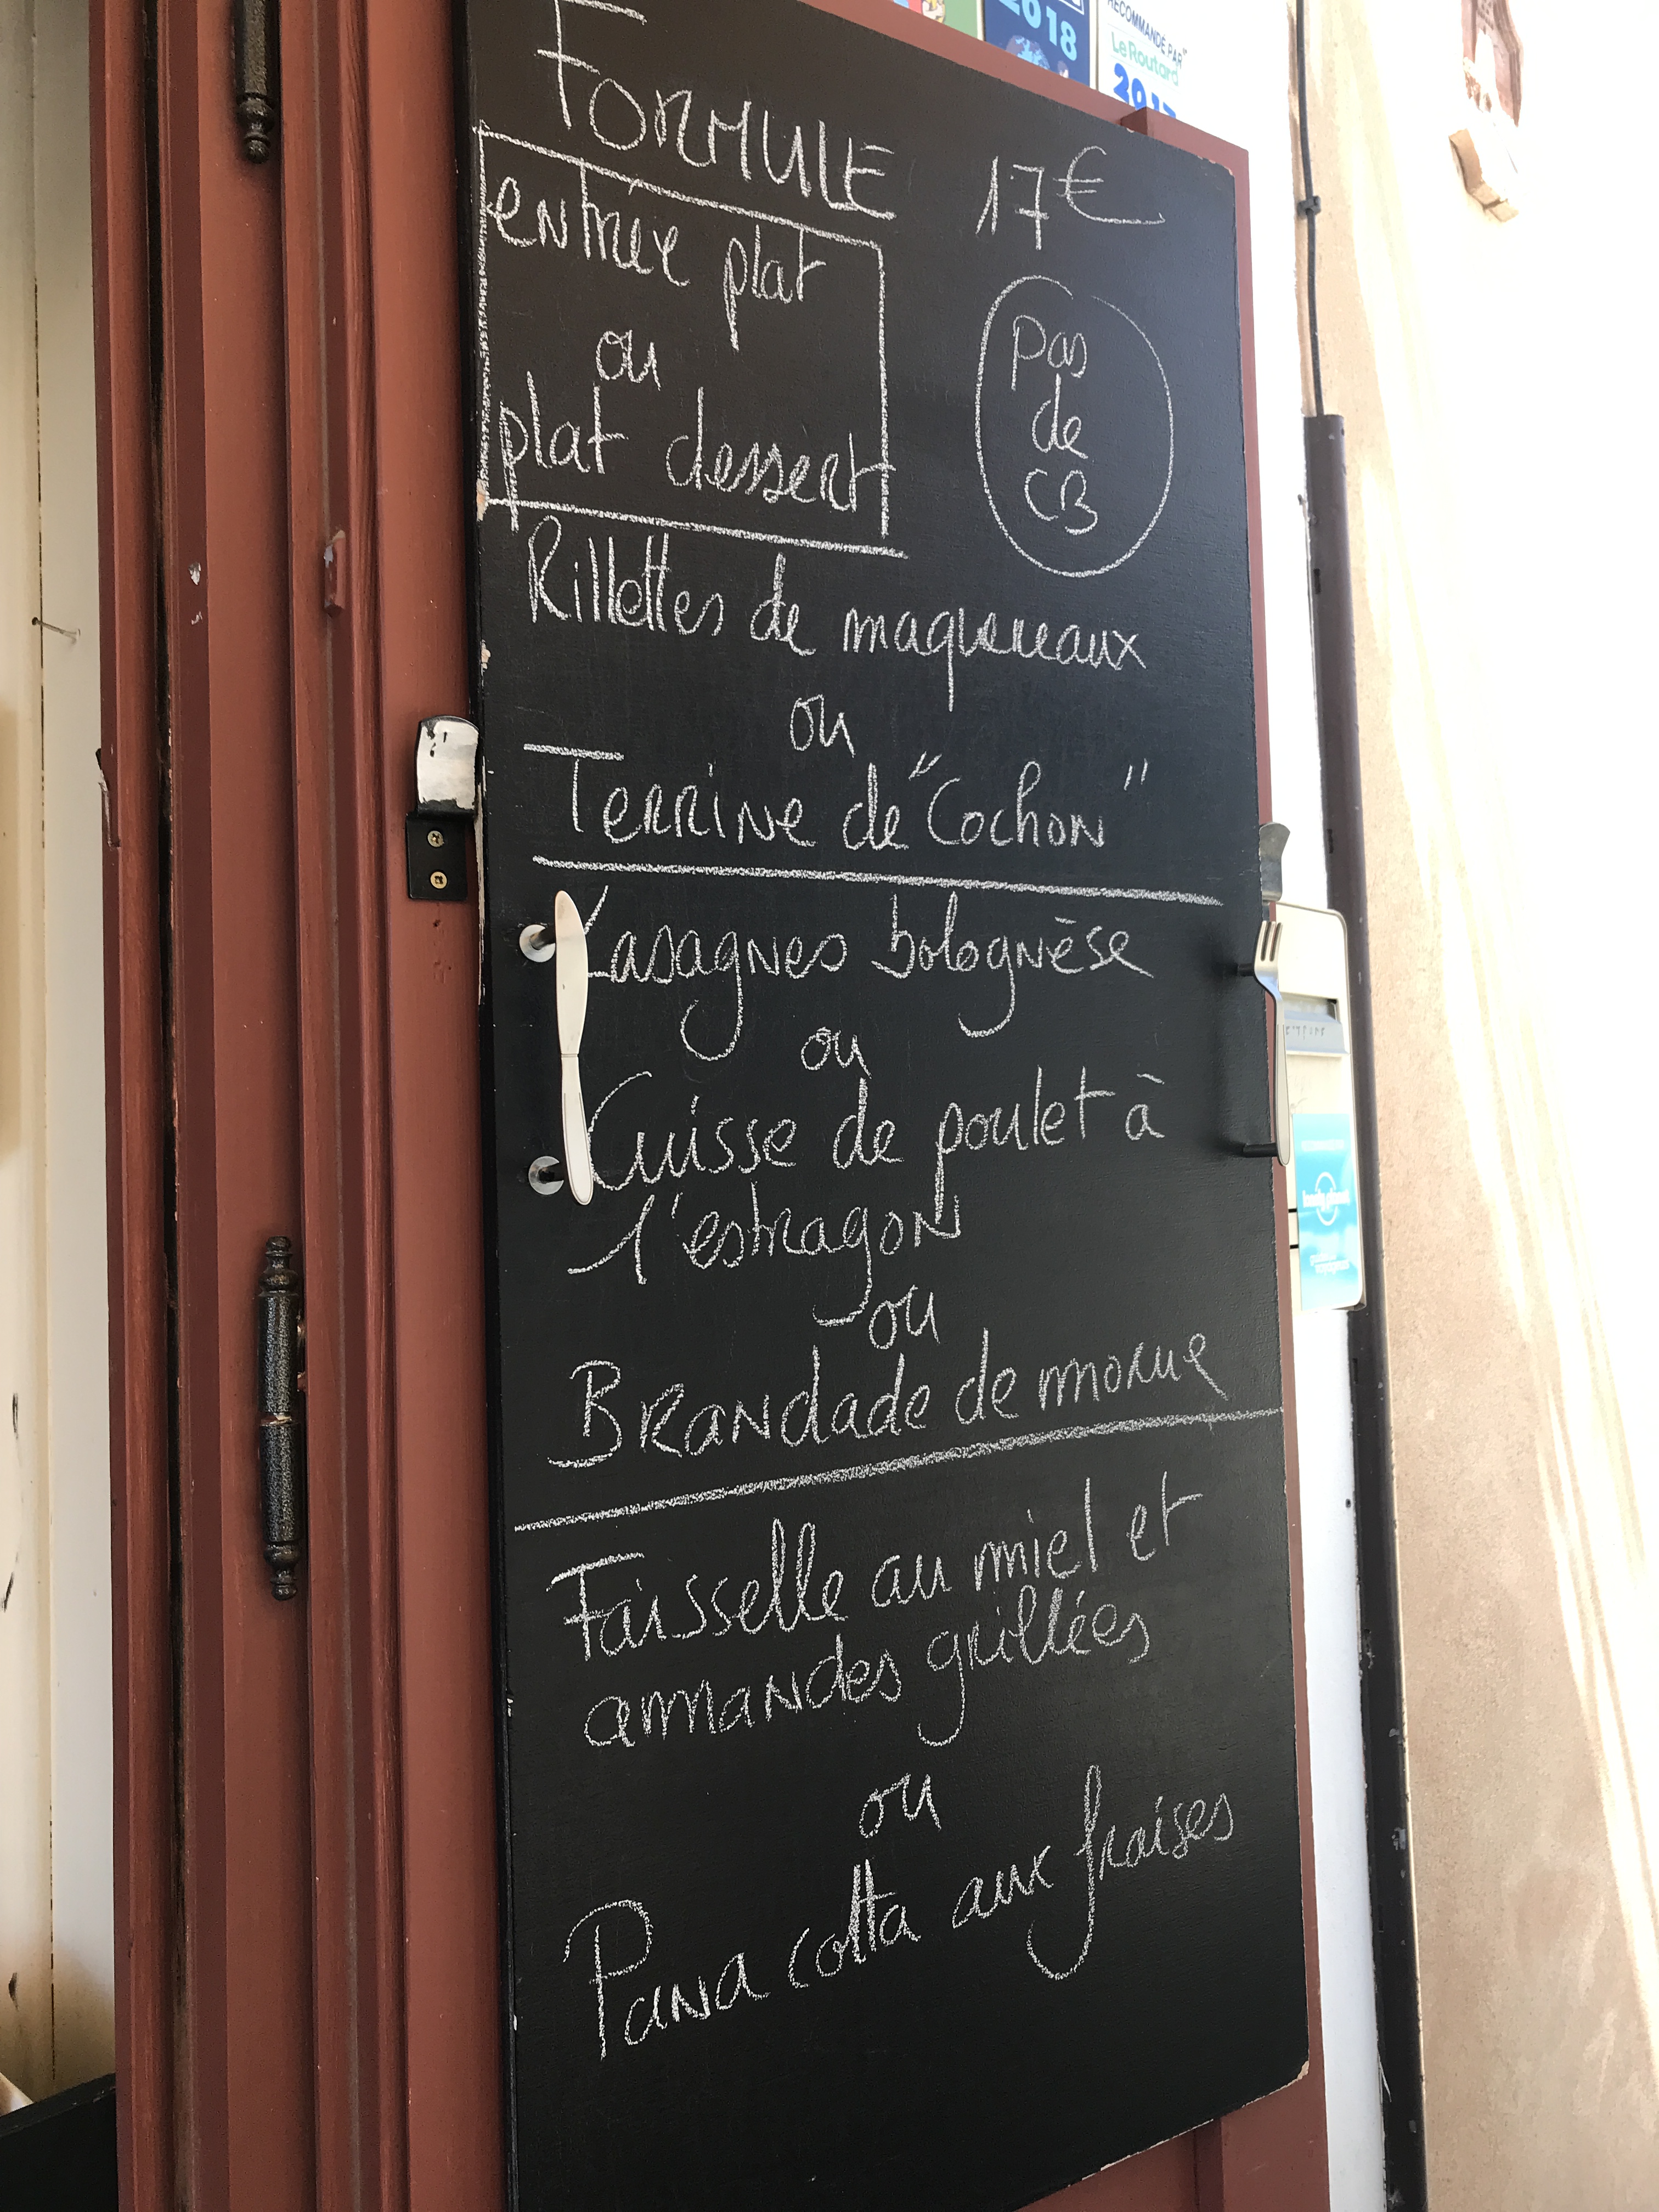 2018
RECOMMANDÉ PAR
Le Routard
2017
FORMULE 17€
entrée plat
ou
plat dessert
pas
de
CB
Rillettes de maquereaux
ou
Terrine de "Cochon"
Lasagnes bolognèse
ou
Cuisse de poulet à
l'estragon
ou
Brandade de morue
Faisselle au miel et
amandes grillées
ou
Pana cotta aux fraises